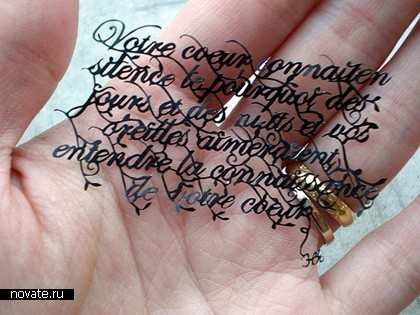 Votre coeur connait en
silence le pourquoi des
jours et des nuits et vos
oreilles aimeraient
entendre la connaissance
de Votre coeur
novate.ru